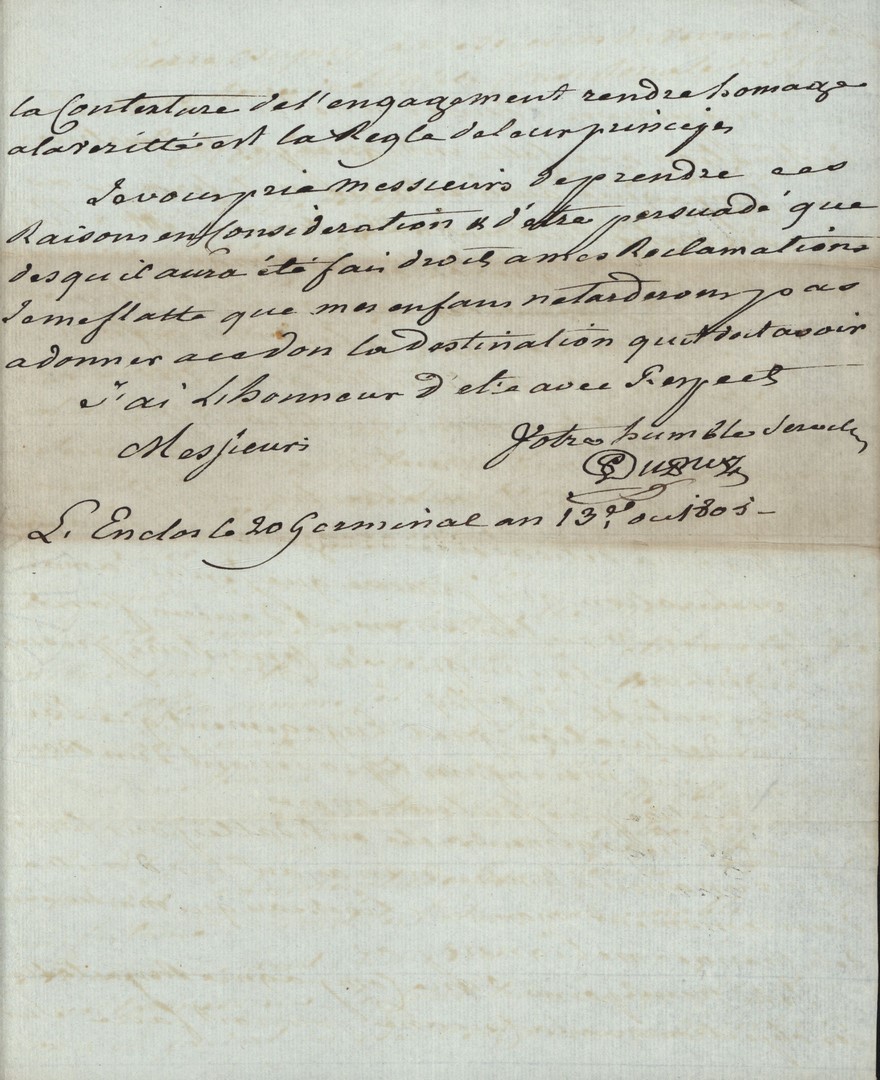 la Contexture de l'engagement rendre homage
a la veritté est la Regle de leur principes
Je vous prie messieurs de prendre ces
Raisons en Consideration & d'etre persuadé que
des qu'il aura été fait droit a mes Reclamations
Je me flatte que mes enfans ne tarderont pas
a donner a ce don la destination qu'il doit avoir
J'ai L'honneur d'etre avec Respect
Messieurs
Votre humble
L'Enclos le 20 Germinal an 13.e ou 1805 -